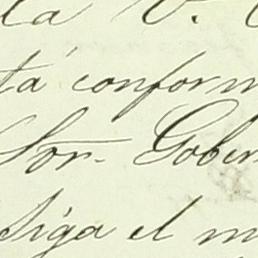 la V.
tá conform
Sor. Gober
Siga el m